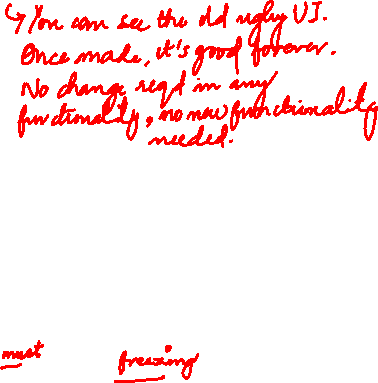 ↳ You can see the old ugly UI.
Once made, it's good forever.
No change reqd in any
functionality, no new functionality
needed.
must freezing